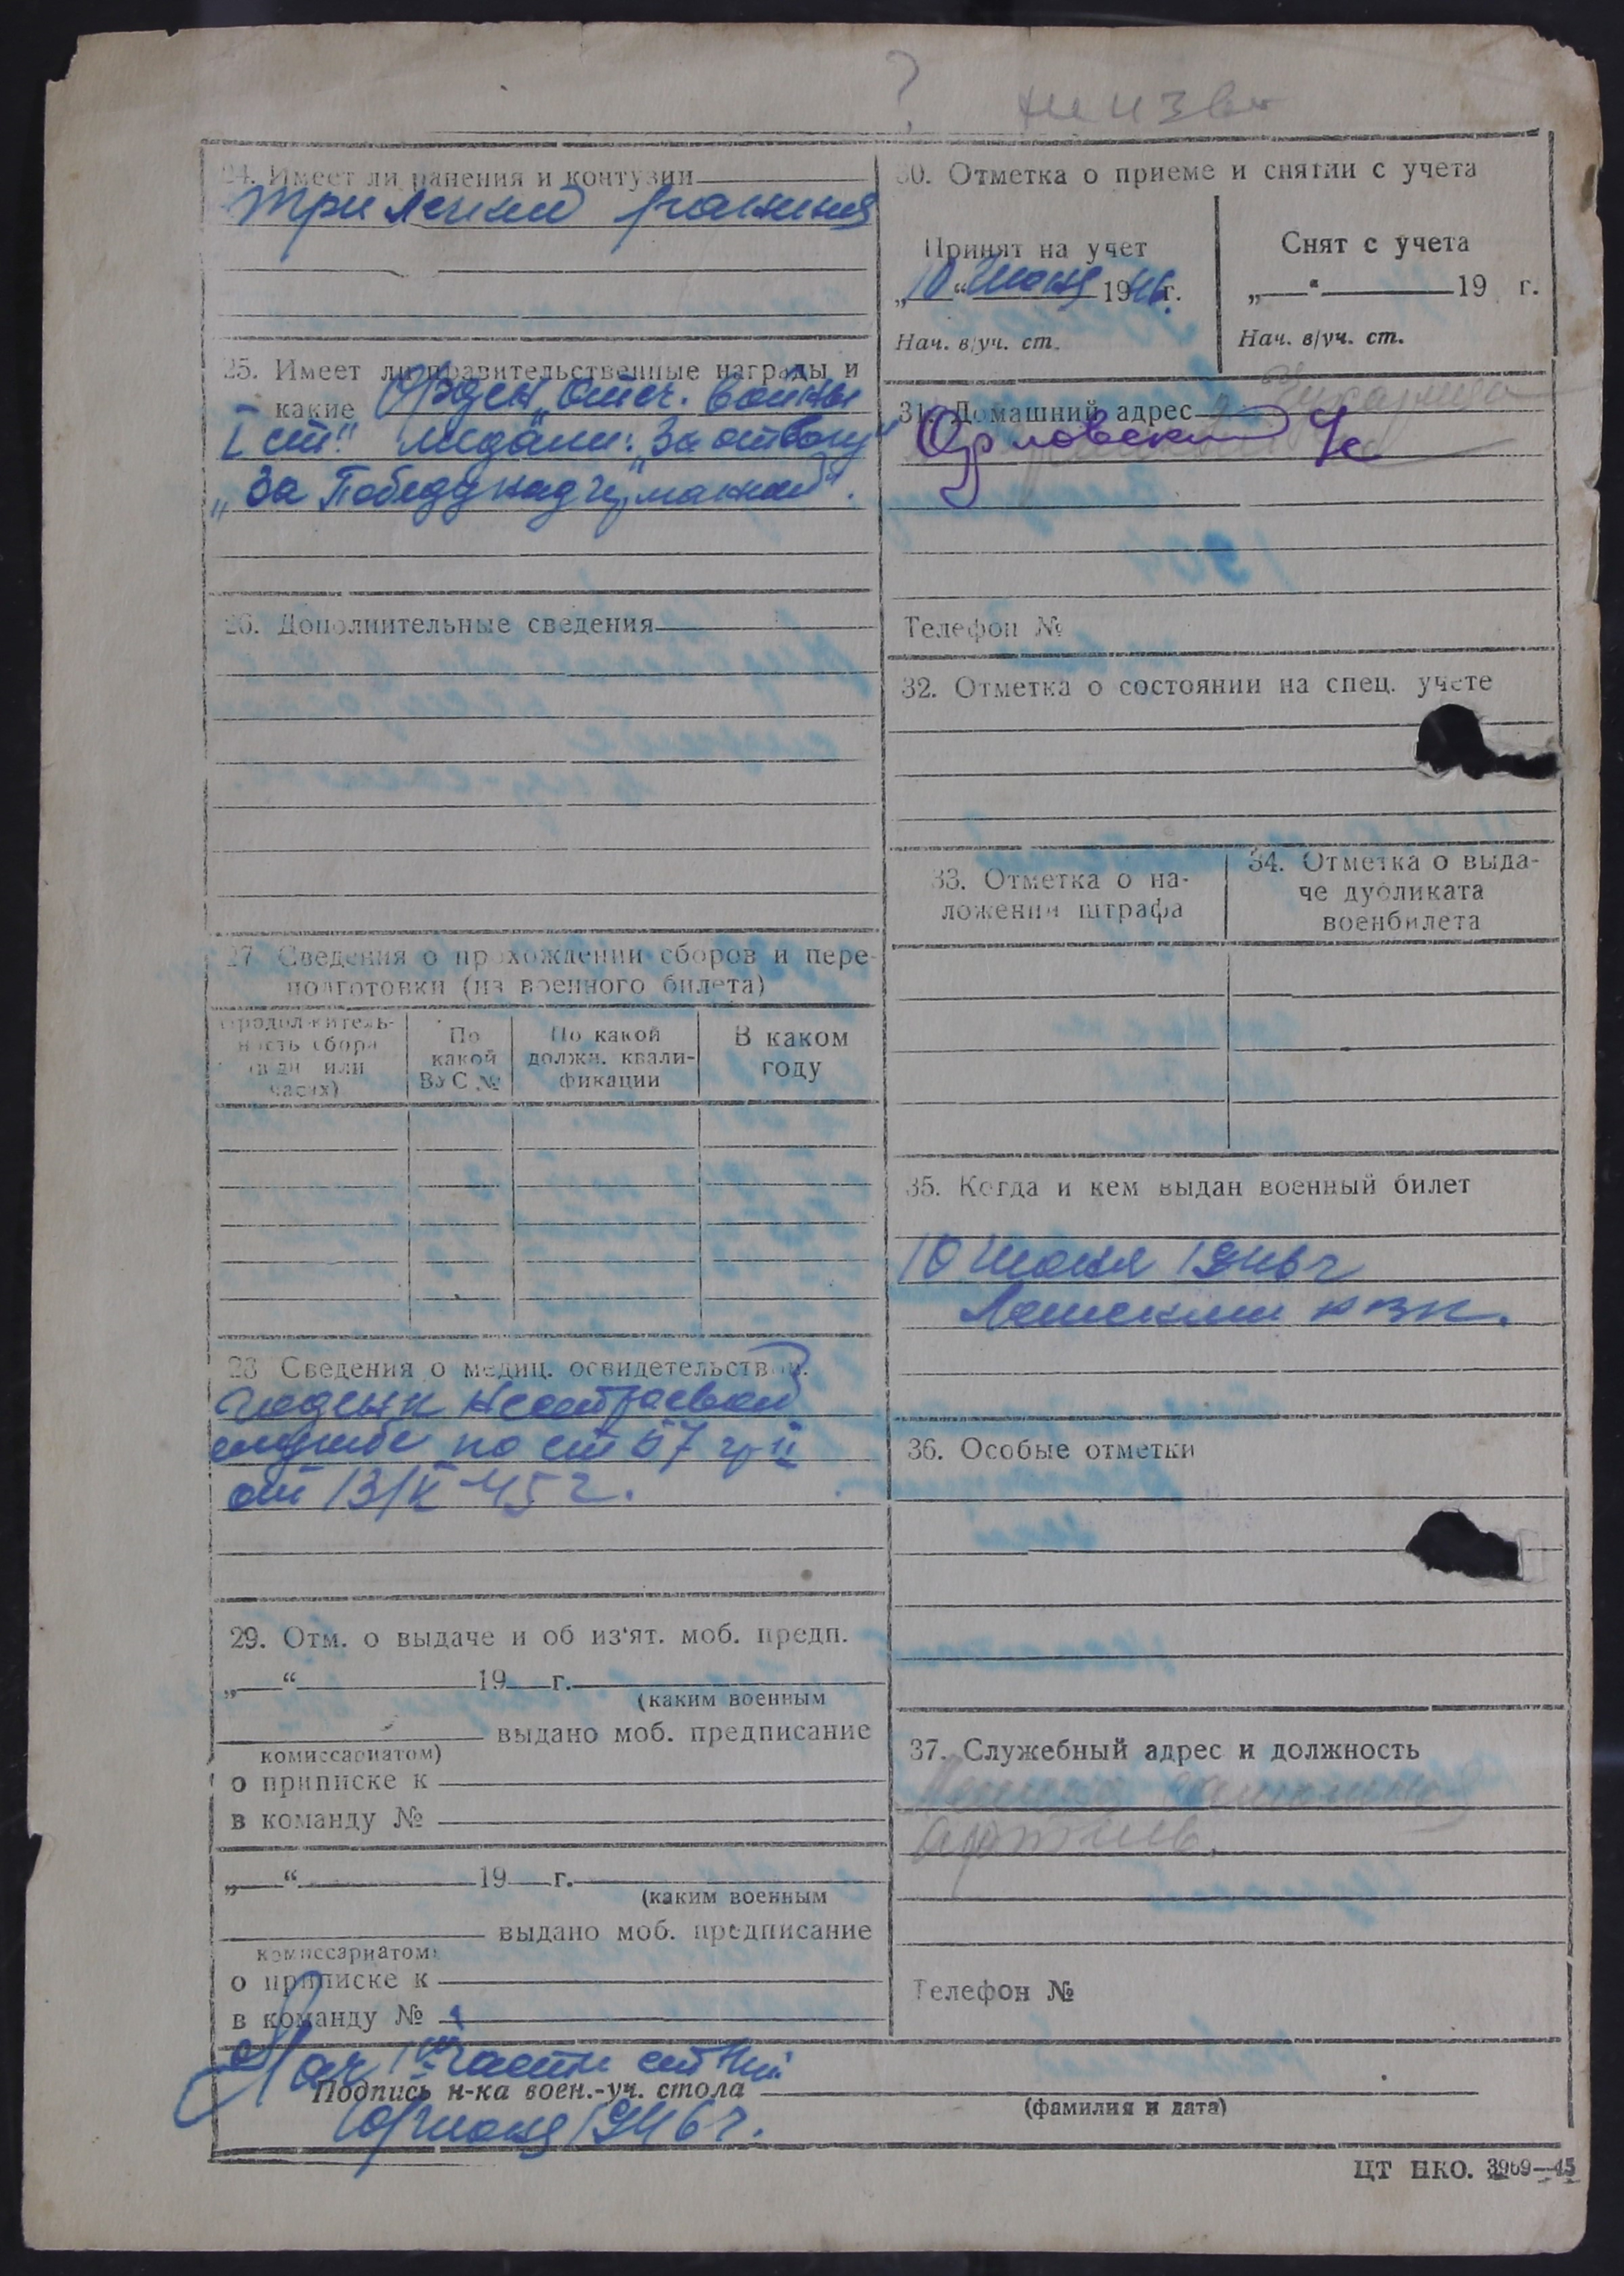 ?
неизв
24. Имеет ли ранения и контузии
три легких ранения
25. Имеет ли правительственные награды и
какие Орден „Отеч. войны
I ст“ медали: „За отвагу“
„За Победу над германией“.
26. Дополнительные сведения
27. Сведения о прохождении сборов и пере-
подготовки (из военного билета)
Продолжитель-
ность сбора
(в дн. или
часах)
По
какой
ВУС №
По какой
должн. квали-
фикации
В каком
году
28. Сведения о медиц. освидетельствов.
Годен к нестроевой
службе по ст 67 гр II
от 13/V-45 г.
29. Отм. о выдаче и об из‘ят. моб. предп.
„ “ 19 г.
(каким военным
выдано моб. предписание
комиссариатом)
о приписке к
в команду №
„ “ 19 г.
(каким военным
выдано моб. предписание
комиссариатом)
о приписке к
в команду №
30. Отметка о приеме и снятии с учета
Принят на учет
„10“ Июня 1946г.
Нач. в/уч. ст.
Снят с учета
„ “ 19 г.
Нач. в/уч. ст.
31. Домашний адрес
Орловский
Телефон №
32. Отметка о состоянии на спец. учете
33. Отметка о на-
ложении штрафа
34. Отметка о выда-
че дубликата
военбилета
35. Когда и кем выдан военный билет
10 Июня 1946 г
36. Особые отметки
37. Служебный адрес и должность
артель.
Телефон №
Нач части
Подпись н-ка воен.-уч. стола
(фамилия и дата)
10 Июня 1946 г.
ЦТ НКО. 3969—45